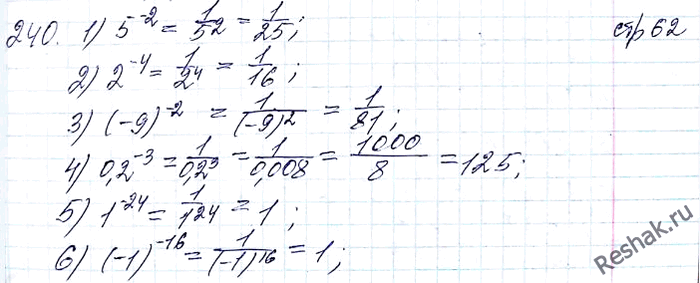 240. 1) 5⁻² = 1/5² = 1/25; стр 62
2) 2⁻⁴ = 1/2⁴ = 1/16;
3) (-9)⁻² = 1/(-9)² = 1/81;
4) 0,2⁻³ = 1/0,2³ = 1/0,008 = 1000/8 = 125;
5) 1⁻²⁴ = 1/1²⁴ = 1;
6) (-1)⁻¹⁶ = 1/(-1)¹⁶ = 1;
Reshak.ru